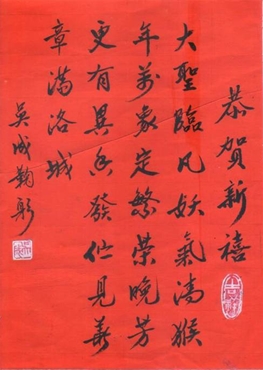 恭賀新禧
大聖臨凡妖氣清猴
年萬象定繁榮晚芳
更有異香發伫見華
章滿洛城
吳成鞠躬